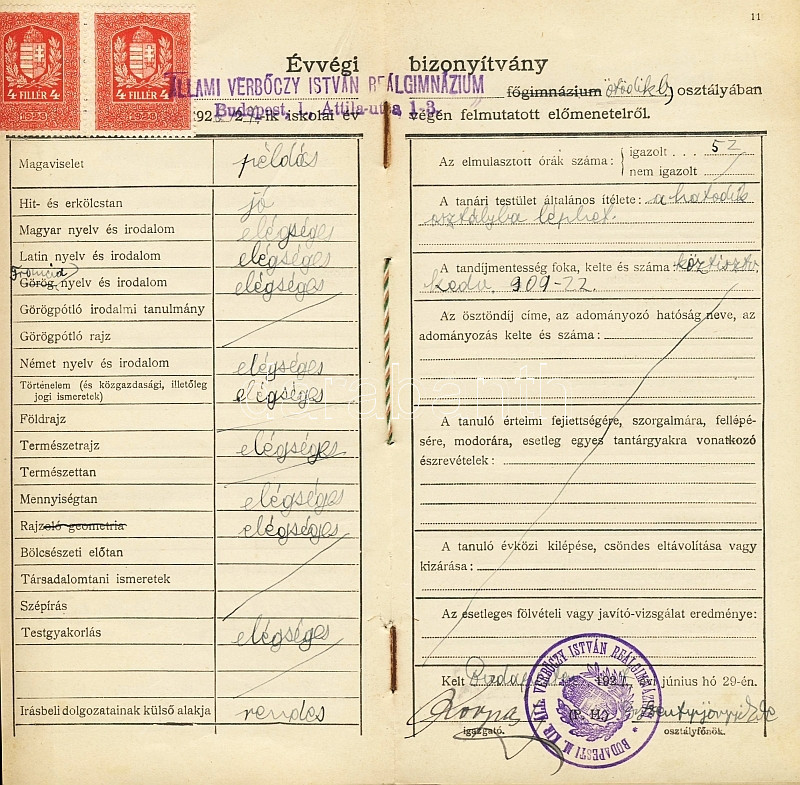 11
4 FILLÉR 4
4 FILLÉR 4
1923
1923
Évvégi bizonyítvány
ÁLLAMI VERBŐCZY ISTVÁN REÁLGIMNÁZIUM
Budapest, I., Attila-utca 1-3.
főgimnázium ötödik b) osztályában
192 -ik iskolai év végén felmutatott előmenetelről.
Magaviselet példás
Hit- és erkölcstan jó
Magyar nyelv és irodalom elégséges
Latin nyelv és irodalom elégséges
Francia
Görög nyelv és irodalom elégséges
Görögpótló irodalmi tanulmány
Görögpótló rajz
Német nyelv és irodalom elégséges
Történelem (és közgazdasági, illetőleg
jogi ismeretek) elégséges
Földrajz
Természetrajz elégséges
Természettan
Mennyiségtan elégséges
Rajzoló geometria elégséges
Bölcsészeti előtan
Társadalomtani ismeretek
Szépírás
Testgyakorlás elégséges
Irásbeli dolgozatainak külső alakja rendes
Az elmulasztott órák száma: igazolt . . . 52
nem igazolt .
A tanári testület általános ítélete: a hatodik
osztályba léphet.
A tandíjmentesség foka, kelte és száma: köztisztv.
kedv. 909-22.
Az ösztöndíj címe, az adományozó hatóság neve, az
adományozás kelte és száma:
A tanuló érteimi fejlettségére, szorgalmára, fellépé-
sére, modorára, esetleg egyes tantárgyakra vonatkozó
észrevételek:
A tanuló évközi kilépése, csöndes eltávolítása vagy
kizárása:
Az esetleges fölvételi vagy javító-vizsgálat eredménye:
Kelt Budapest 192 évi június hó 29-én.
BUDAPESTI M. KIR. ÁLL. VERBŐCZY ISTVÁN REÁLGIMNÁZIUM
(P. H.)
igazgató.
osztályfőnök.
darabanth